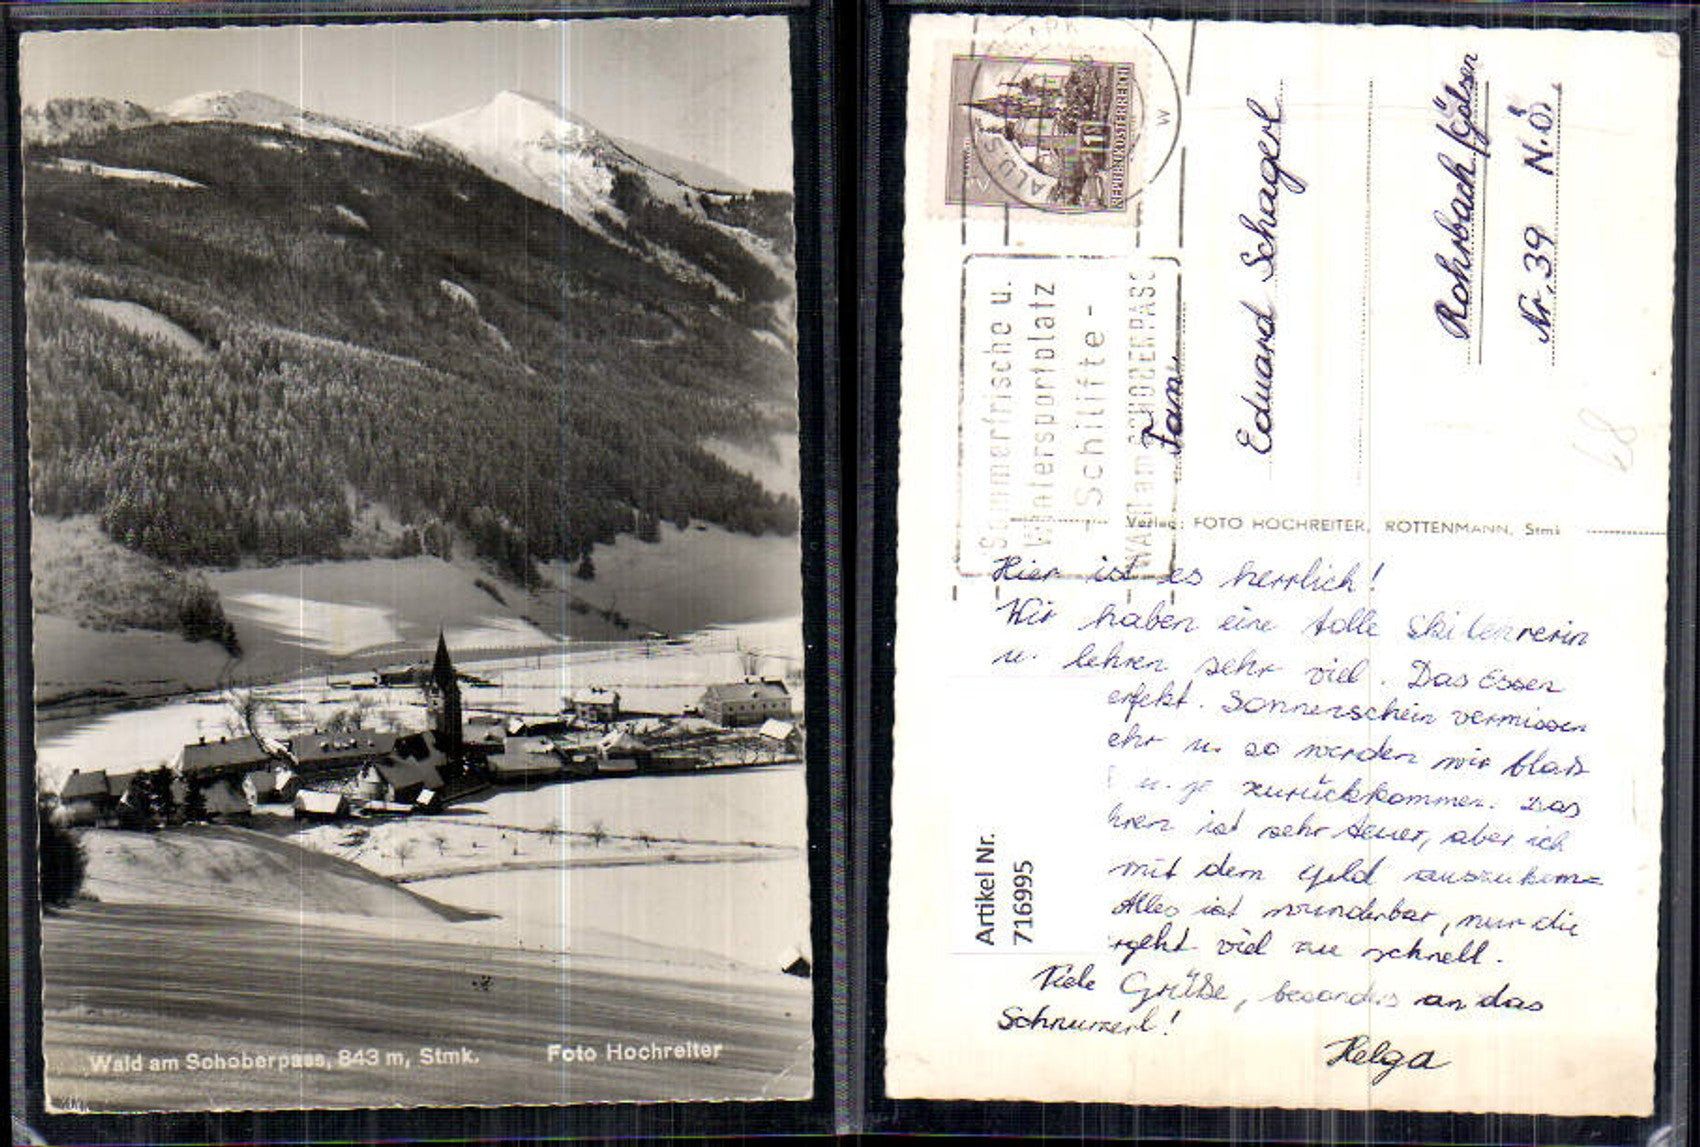 Wald am Schoberpass, 843 m, Stmk. Foto Hochreiter
REPUBLIK ÖSTERREICH
1
Sommerfrische u.
Wintersportplatz
- Schilifte -
WALD am SCHOBERPASS
Fam.
Eduard Schagerl
Rohrbach/Gölsen
Nr. 39 N.Ö.
68
Verlag: FOTO HOCHREITER, ROTTENMANN, Stmk
Hier ist es herrlich!
Wir haben eine tolle Skilehrerin
u. lehren sehr viel. Das Essen
erfekt. Sonnenschein vermissen
ehr u. so werden wir blaß
zurückkommen. Das
hren ist sehr teuer, aber ich
mit dem Geld auszukom=
Alles ist wunderbar, nur die
rgeht viel zu schnell.
Viele Grüße, besonders an das
Schnurzerl!
Helga
Artikel Nr.
716995